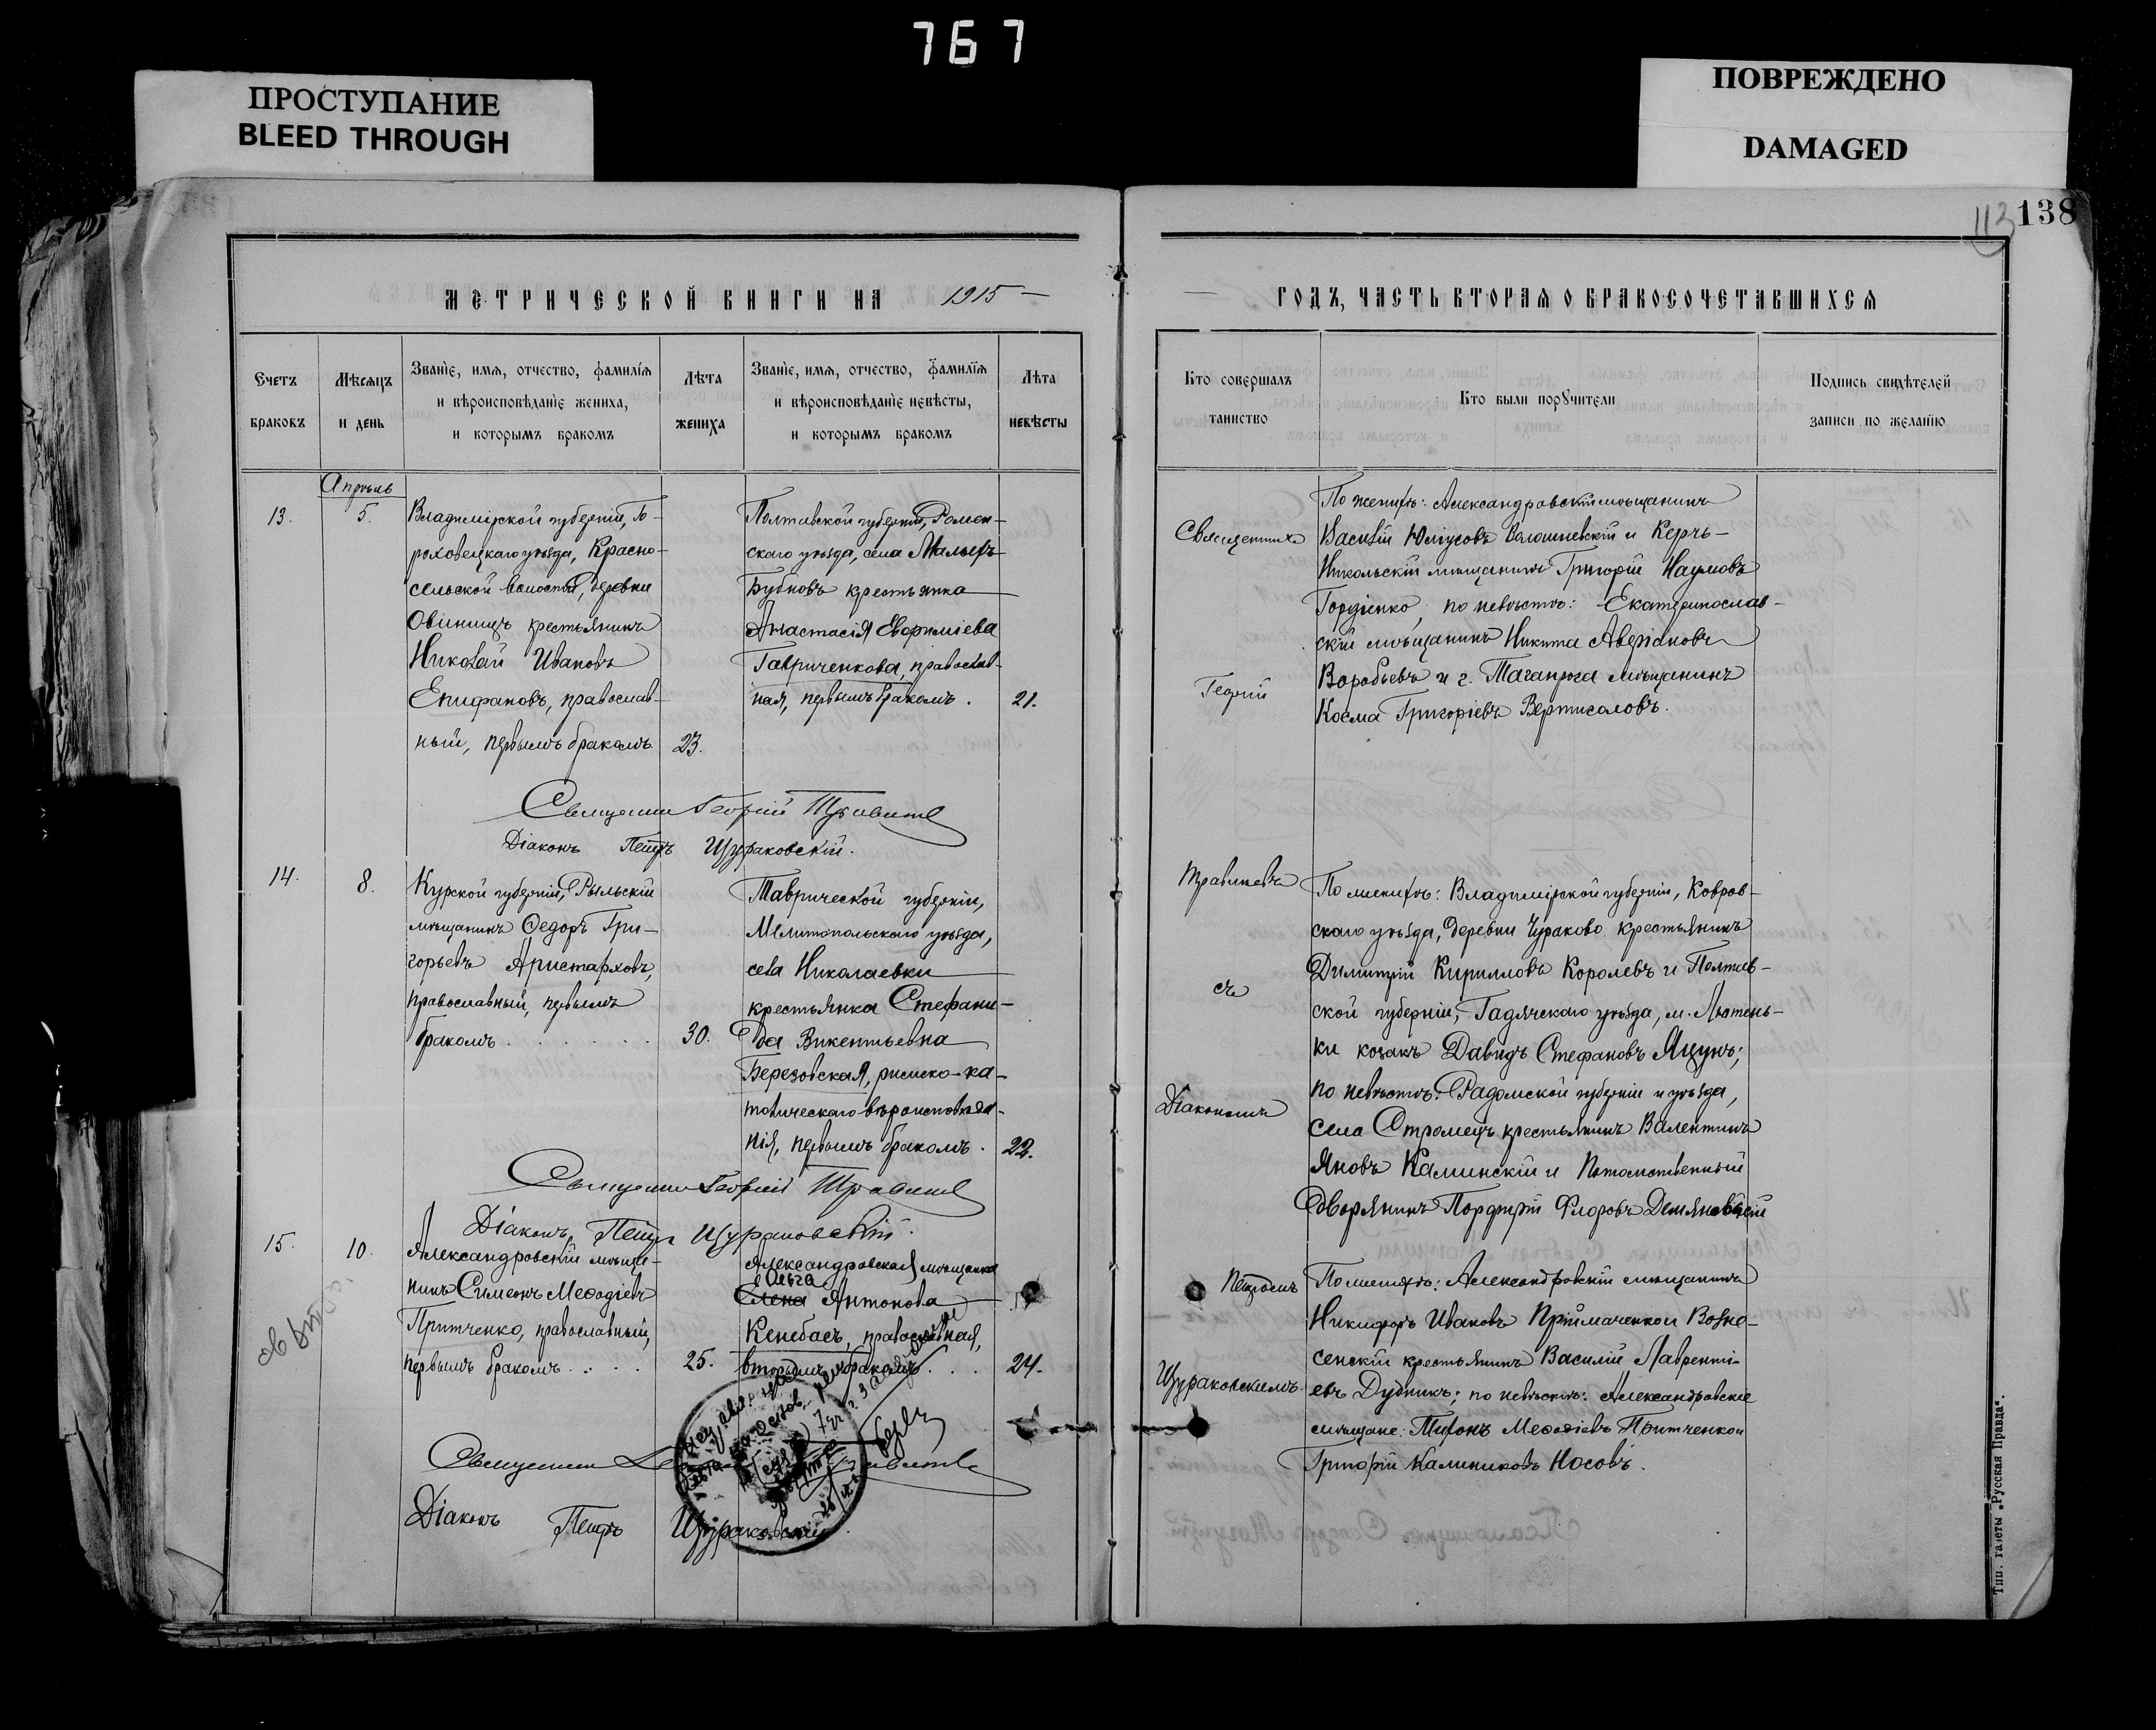 767
ПРОСТУПАНИЕ
BLEED THROUGH
ПОВРЕЖДЕНО
DAMAGED
113 138
МЕТРИЧЕСКОЙ КНИГИ НА 1915
Счетъ браковъ
Мѣсяцъ и день
Званіе, имя, отчество, фамилія
и вѣроисповѣданіе жениха,
и которымъ бракомъ
Лѣта жениха
Званіе, имя, отчество, фамилія
и вѣроисповѣданіе невѣсты,
и которымъ бракомъ
Лѣта невѣсты
Апрѣль
13.
5.
Владимірской губерніи, Го-
роховецкаго уѣзда, Красно-
сельской волости, деревни
Овинищъ крестьянинъ
Николай Ивановъ
Епифановъ, православ-
ный, первымъ бракомъ
23.
Полтавской губерніи, Ромен-
скаго уѣзда, села Малыхъ
Бубновъ крестьянка
Анастасія Евфиміева
Гавриченкова, православ-
ная, первымъ бракомъ.
21.
Священникъ Георгій
Діаконъ Петръ Щураковскій.
14.
8.
Курской губерніи, Рыльскій
мѣщанинъ Ѳедоръ Гри-
горьевъ Аристарховъ,
православный, первымъ
бракомъ
30.
Таврической губерніи,
Мелитопольскаго уѣзда,
села Николаевки
крестьянка Стефани-
да Викентьевна
Березовская, римско-ка-
толическаго вѣроисповѣда-
нія, первымъ бракомъ.
22.
Священникъ Георгій
Діаконъ Петръ Щураковскій.
15.
10.
Александровскій мѣща-
нинъ Симеонъ Меѳодіевъ
Притченко, православный,
первымъ бракомъ
25.
Александровская мѣщанка
Ольга
Елена Антонова
Кенебасъ, православная,
вторымъ бракомъ
24.
Священникъ
Діаконъ Петръ Щураковскій.
ГОДЪ, ЧАСТЬ ВТОРАЯ О БРАКОСОЧЕТАВШИХСЯ
Кто совершалъ
таинство
Кто были поручители
Подпись свидѣтелей
записи по желанію
Священникъ
Георгій
Травиневъ
съ
Діакономъ
Петромъ
Щураковскимъ.
По женихѣ: Александровскій мѣщанинъ
Василій Юліусовъ Волошневскій и Керчь-
Никольскій мѣщанинъ Григорій Наумовъ
Гордіенко; по невѣстѣ: Екатеринослав-
скій мѣщанинъ Никита Аверіановъ
Воробьевъ и г. Таганрога мѣщанинъ
Косма Григоріевъ Вертисаловъ.
По женихѣ: Владимірской губерніи, Ковров-
скаго уѣзда, деревни Чураково крестьянинъ
Димитрій Кирилловъ Королевъ и Полтав-
ской губерніи, Гадячскаго уѣзда, м. Лютень-
ки козакъ Давидъ Стефановъ Яцунъ;
по невѣстѣ: Радомской губерніи и уѣзда,
села Стромецъ крестьянинъ Валентинъ
Яновъ Каминскій и Потомственный
дворянинъ Порфирій Флоровъ Демяновскій
По женихѣ: Александровскій мѣщанинъ
Никифоръ Ивановъ Пріймаченко и Возне-
сенскій крестьянинъ Василій Лавренті-
евъ Дубникъ; по невѣстѣ: Александровскіе
мѣщане: Тихонъ Меѳодіевъ Притченко и
Григорій Калиниковъ Носовъ.
Тип. газеты „Русская Правда“.